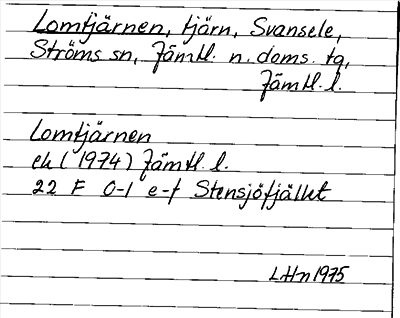 Lomtjärnen, tjärn, Svansele,
Ströms sn, Jämtl. n. doms. tg,
Jämtl. l.
Lomtjärnen
ek (1974) Jämtl. l.
22 F 0-1 e-f Stensjöfjället
LHn 1975